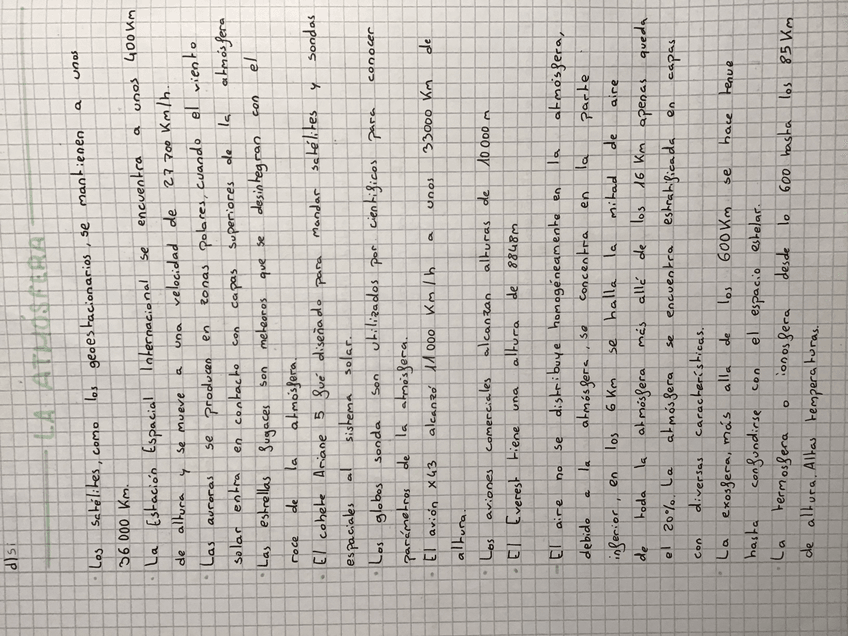 d1si
LA ATMÓSFERA
· Los satélites, como los geoestacionarios, se mantienen a unos
36 000 Km.
· La Estación Espacial Internacional se encuentra a unos 400 Km
de altura y se mueve a una velocidad de 27 700 Km/h.
· Las auroras se producen en zonas polares, cuando el viento
solar entra en contacto con capas superiores de la atmósfera
· Las estrellas fugaces son meteoros que se desintegran con el
roce de la atmósfera.
· El cohete Ariane 5 fué diseñado para mandar satélites y sondas
espaciales al sistema solar.
· Los globos sonda son utilizados por científicos para conocer
parámetros de la atmósfera.
· El avión x43 alcanzó 11 000 Km/h a unos 33000 Km de
altura.
· Los aviones comerciales alcanzan alturas de 10 000 m
· El Everest tiene una altura de 8848m
· El aire no se distribuye homogéneamente en la atmósfera,
debido a la atmósfera, se concentra en la parte
inferior, en los 6 Km se halla la mitad de aire
de toda la atmósfera más allá de los 16 Km apenas queda
el 20%. La atmósfera se encuentra estratificada en capas
con diversas características.
· La exosfera, más alla de los 600 Km se hace tenue
hasta confundirse con el espacio estelar.
· La termosfera o ionosfera desde lo 600 hasta los 85 Km
de altura. Altas temperaturas.